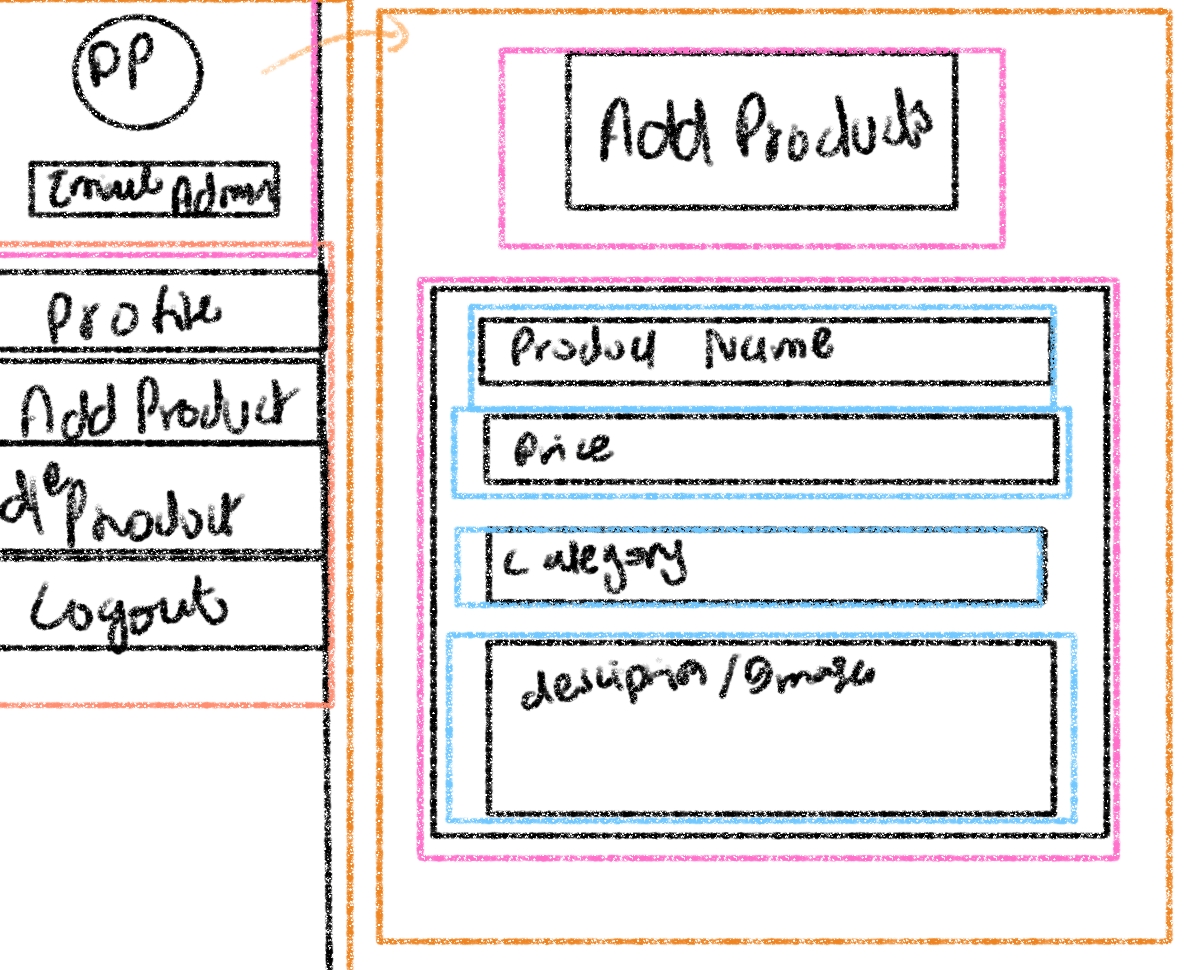 DP
Email Admin
Profile
Add Product
de Product
Logout
Add Products
Product Name
Price
Category
description / Image